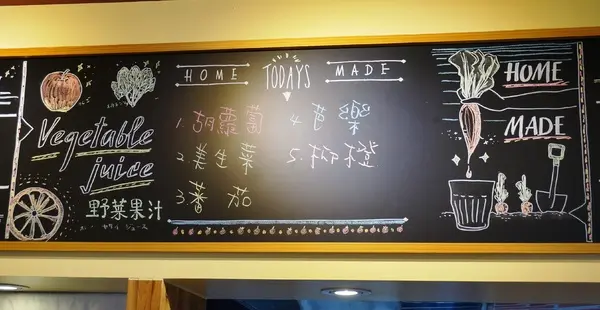 Vegetable
juice
野菜果汁
HOME TODAYS MADE
1.胡蘿蔔
2.美生菜
3.蕃茄
4.芭樂
5.柳橙
HOME
MADE